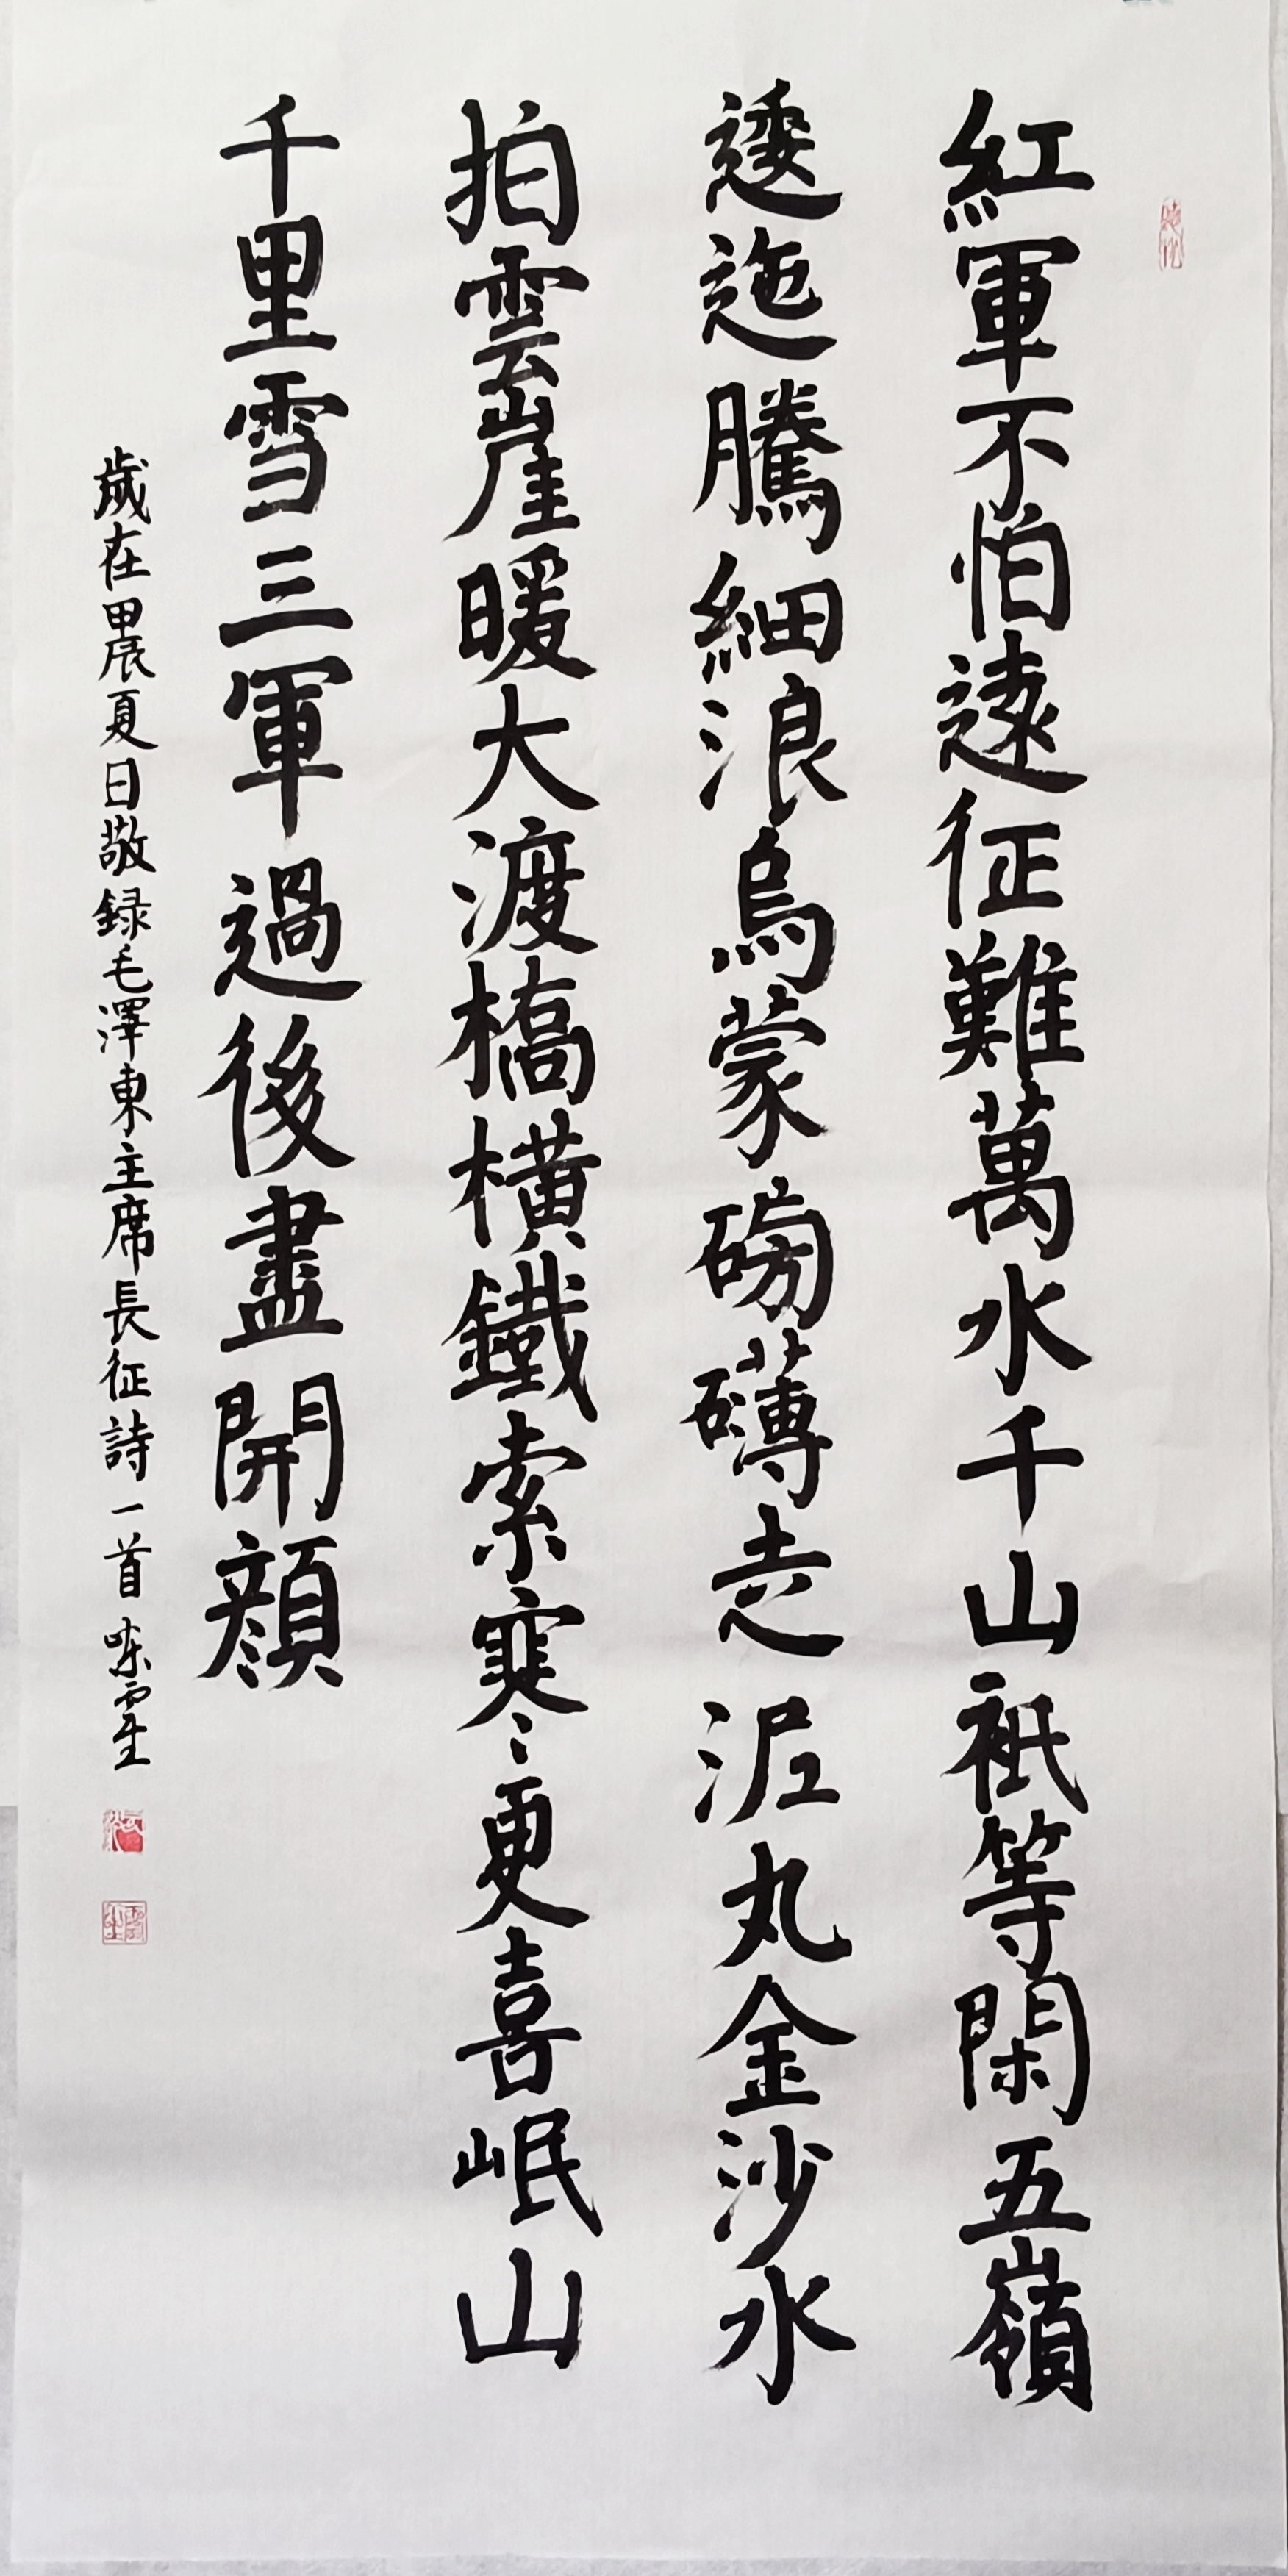 紅軍不怕遠征難萬水千山衹等閑五嶺
逶迤騰細浪烏蒙磅礴走泥丸金沙水
拍雲崖暖大渡橋橫鐵索寒更喜岷山
千里雪三軍過後盡開顔
歲在甲辰夏日敬録毛澤東主席長征詩一首